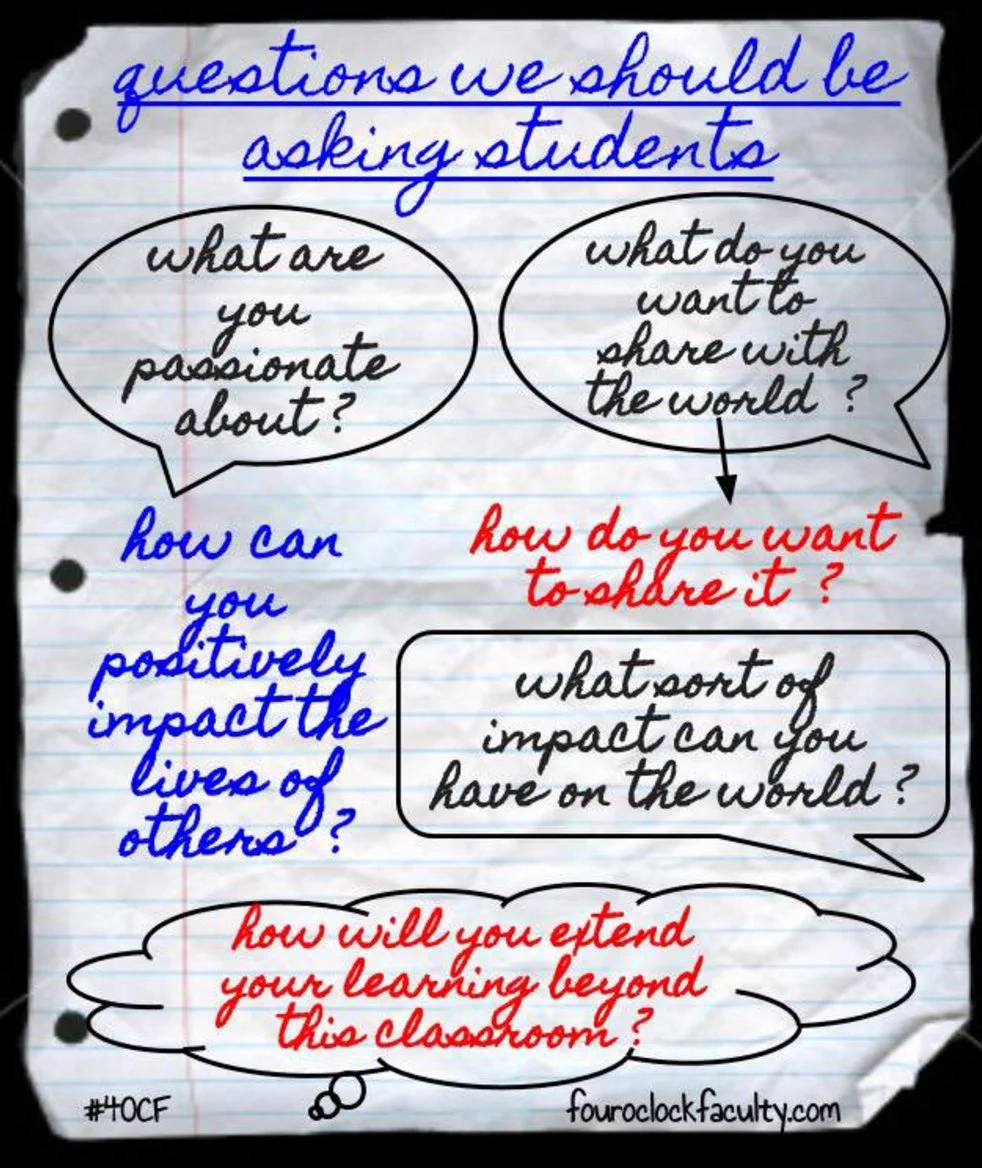 questions we should be
asking students
what are
you
passionate
about?
what do you
want to
share with
the world ?
how do you want
to share it ?
how can
you
positively
impact the
lives of
others ?
what sort of
impact can you
have on the world ?
how will you extend
your learning beyond
this classroom ?
#4OCF
fouroclockfaculty.com